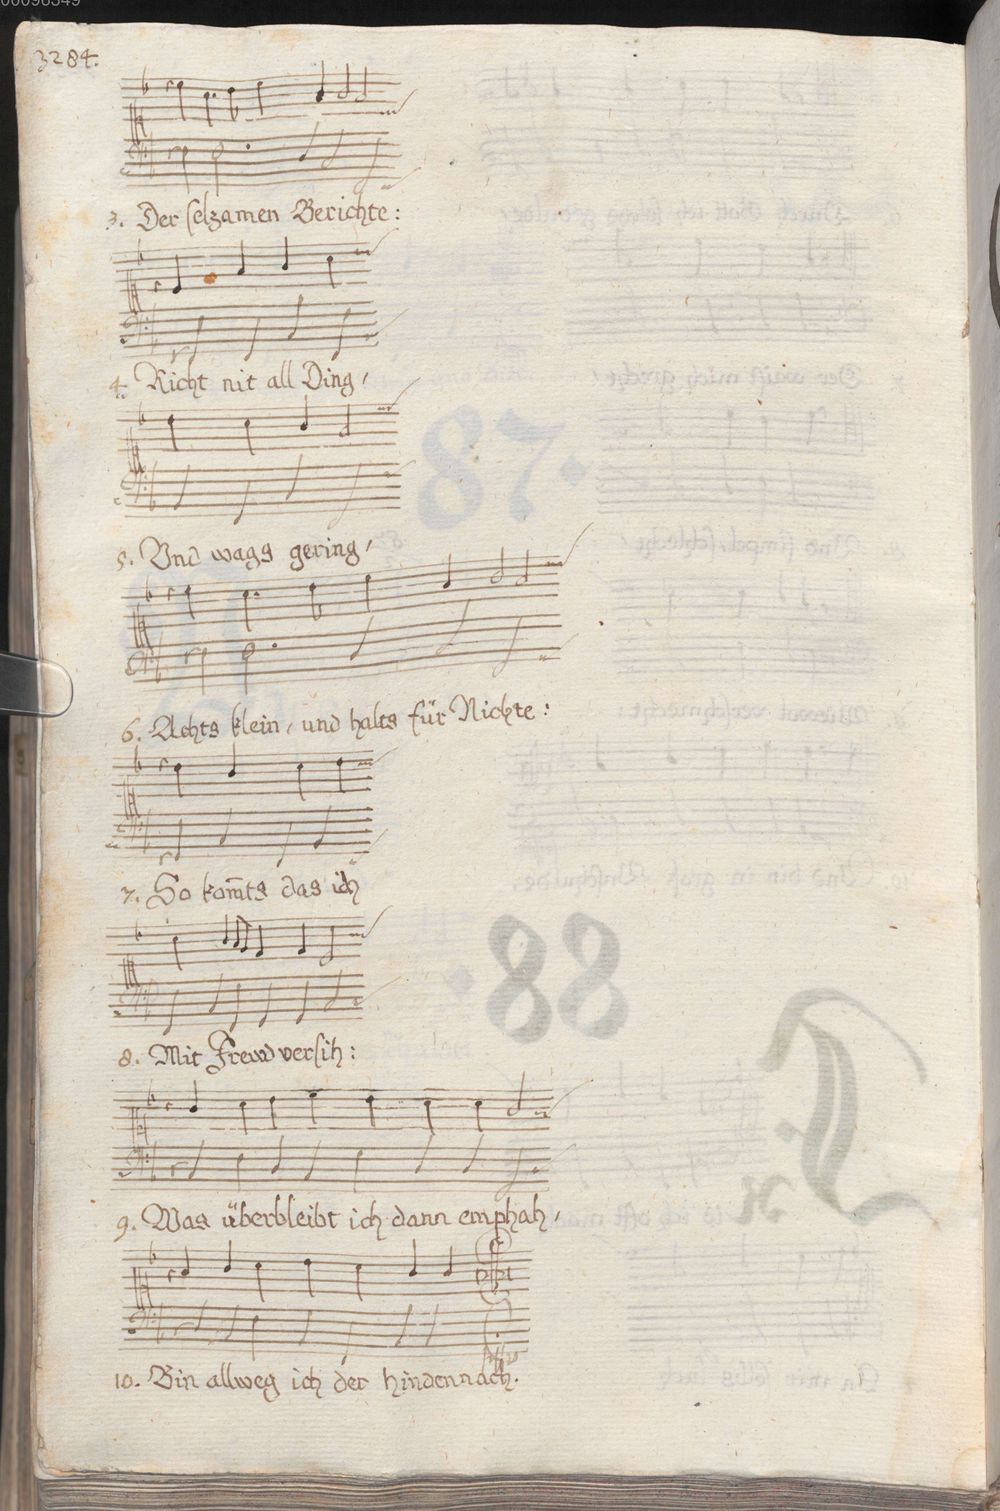 3284.
3. Der selzamen Berichte:
4. Richt nit all Ding,
5. Vnd wags gering,
6. Achts klein, und halts für Nichte:
7. So kom̄ts das ich
8. Mit Frewd versih:
9. Was überbleibt ich dann emphah,
10. Bin allweg ich der hindennach.